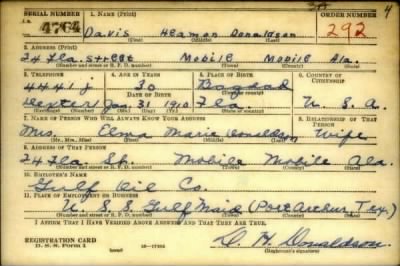 SERIAL NUMBER 1. NAME (Print) ORDER NUMBER
4764 Davis Heamon Donaldson 292
(First) (Middle) (Last)
2. ADDRESS (Print)
74 Fla. Street Mobile Mobile Ala.
(Number and street or R. F. D. number) (Town) (County) (State)
3. TELEPHONE 4. AGE IN YEARS 5. PLACE OF BIRTH 6. COUNTRY OF CITIZENSHIP
4441 J 30
DATE OF BIRTH
Dexter Jan 31 1910 Fla. U. S. A.
(Exchange) (No.) (Mo.) (Day) (Yr.) (State or country)
7. NAME OF PERSON WHO WILL ALWAYS KNOW YOUR ADDRESS 8. RELATIONSHIP OF THAT PERSON
Mrs. Elma Marie Donaldson Wife
(Mr., Mrs., Miss) (First) (Middle) (Last)
9. ADDRESS OF THAT PERSON
74 Fla St. Mobile Mobile Ala.
(Number and street or R. F. D. number) (Town) (County) (State)
10. EMPLOYER'S NAME
Gulf Oil Co.
11. PLACE OF EMPLOYMENT OR BUSINESS
U. S. S. Gulf Maid (Port Arthur Tex.)
(Number and street or R. F. D. number) (Town) (County) (State)
I AFFIRM THAT I HAVE VERIFIED ABOVE ANSWERS AND THAT THEY ARE TRUE.
REGISTRATION CARD
D. S. S. Form 1 D. H. Donaldson